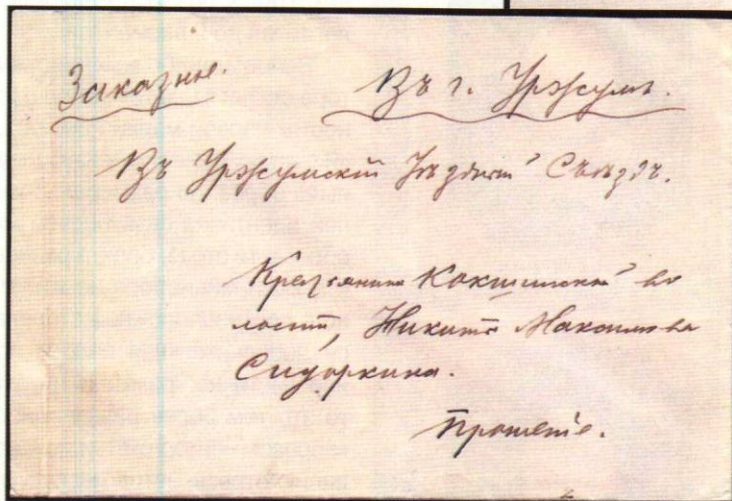 Заказное.
Въ г. Уржумъ.
Въ Уржумскій Уѣздный Съѣздъ.
Крестьянина Кокшинской во
лости, Никиты Максимова
Сидоркина.
Прошеніе.